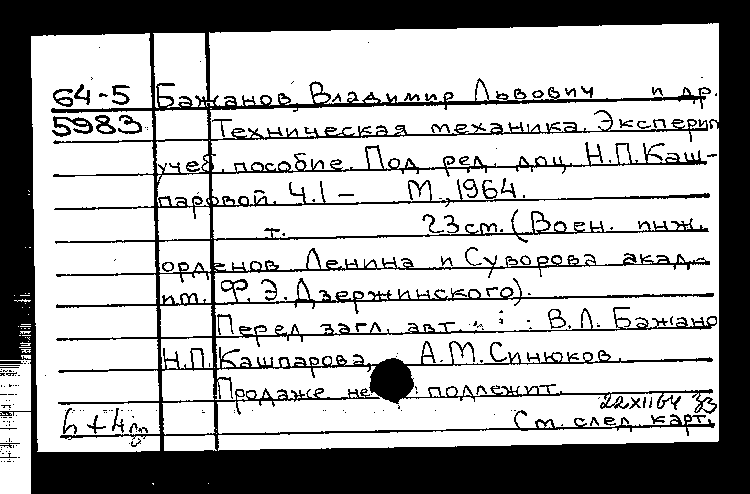 64-5 Бажанов, Владимир Львович и др.
5983 Техническая механика. Эксперим
учеб. пособие. Под ред. доц. Н.П.Каш-
паровой. Ч.I – М., 1964.
т. 23см. (Воен. инж.
орденов Ленина и Суворова акад.
им. Ф.Э.Дзержинского).
Перед загл. авт.: В.Л. Бажано
Н.П. Кашпарова, А.М. Синюков.
Продаже не подлежит.
22XII64
См. след. карт.